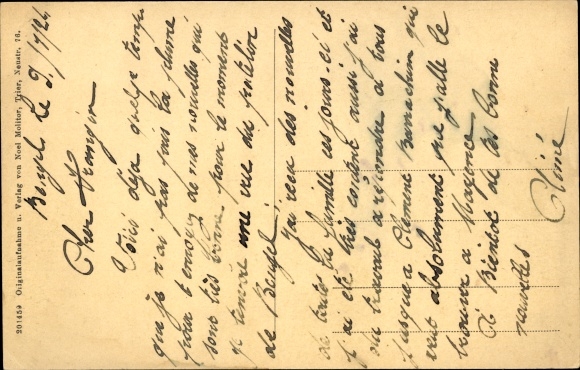 201459 Originalaufnahme u. Verlag von Noel Molitor, Trier, Neustr. 76.
Bengel le 9/7/24
Cher François
Voici déja quelque temps
que je n'ai pas pris la plume
pour t'envoyer de mes nouvelles qui
sont très bonnes pour le moment
je t'envoie une vue du
de Bengel.
J'ai recu des nouvelles
de toute la famille ces jours-ci et
j'ai été très content aussi j'ai
du travail a répondre a tous
jusqu'a Clément qui
veut absolument que j'aille le
trouver a Mayence
A Bientot de tes bonnes
nouvelles
Aimé